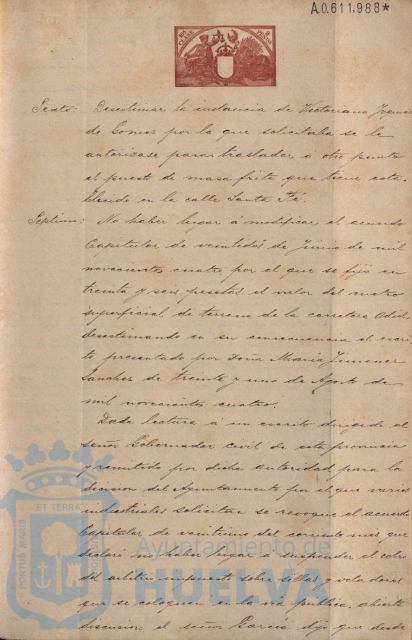 A.0.611.988*
Sexto: Desestimar la instancia de Victoriano
de Gomez por la que solicitaba se le
autorizase para trasladar a otro punto
el puesto de masa frita que tiene esta-
blecido en la calle Santa Fé.
Séptimo: No haber lugar á modificar el acuerdo
Capitular de veintidos de Junio de mil
novecientos cuatro por el que se fijó en
treinta y seis pesetas el valor del metro
superficial de terreno de la carretera Odiel,
desestimando en su consecuencia el escri-
to presentado por Doña Maria Jimenez
Sanchez de treinta y uno de Agosto de
mil novecientos cuatro.
Dada lectura á un escrito dirigido al
señor Gobernador civil de esta provincia
y remitido por dicha autoridad para la
del Ayuntamiento por el que varios
industriales solicitan se revoque el acuerdo
Capitular de veintiuno del corriente mes que
declaró no haber lugar á suspender el cobro
del arbitrio impuesto sobre sillas y veladores
que se coloquen en la via pública, abierta
discusion el señor Garcia dijo que desde
PORTUS MARIS ET TERRAE
Ayuntamiento de
HUELVA